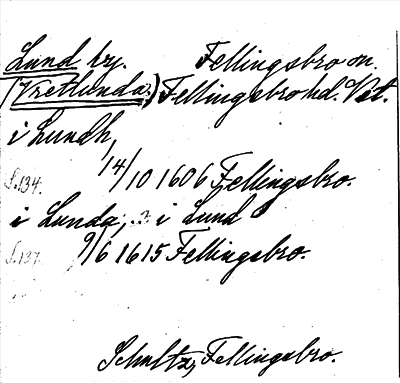 Lund by. Fellingsbro sn.
(Vretlunda.) Fellingsbro hd. Vst.
i Lundh,
S.134. 14/10 1606 Fellingsbro.
i Lunda, ..? i Lund
S.137. 9/6 1615 Fellingsbro.
Schultz, Fellingsbro.